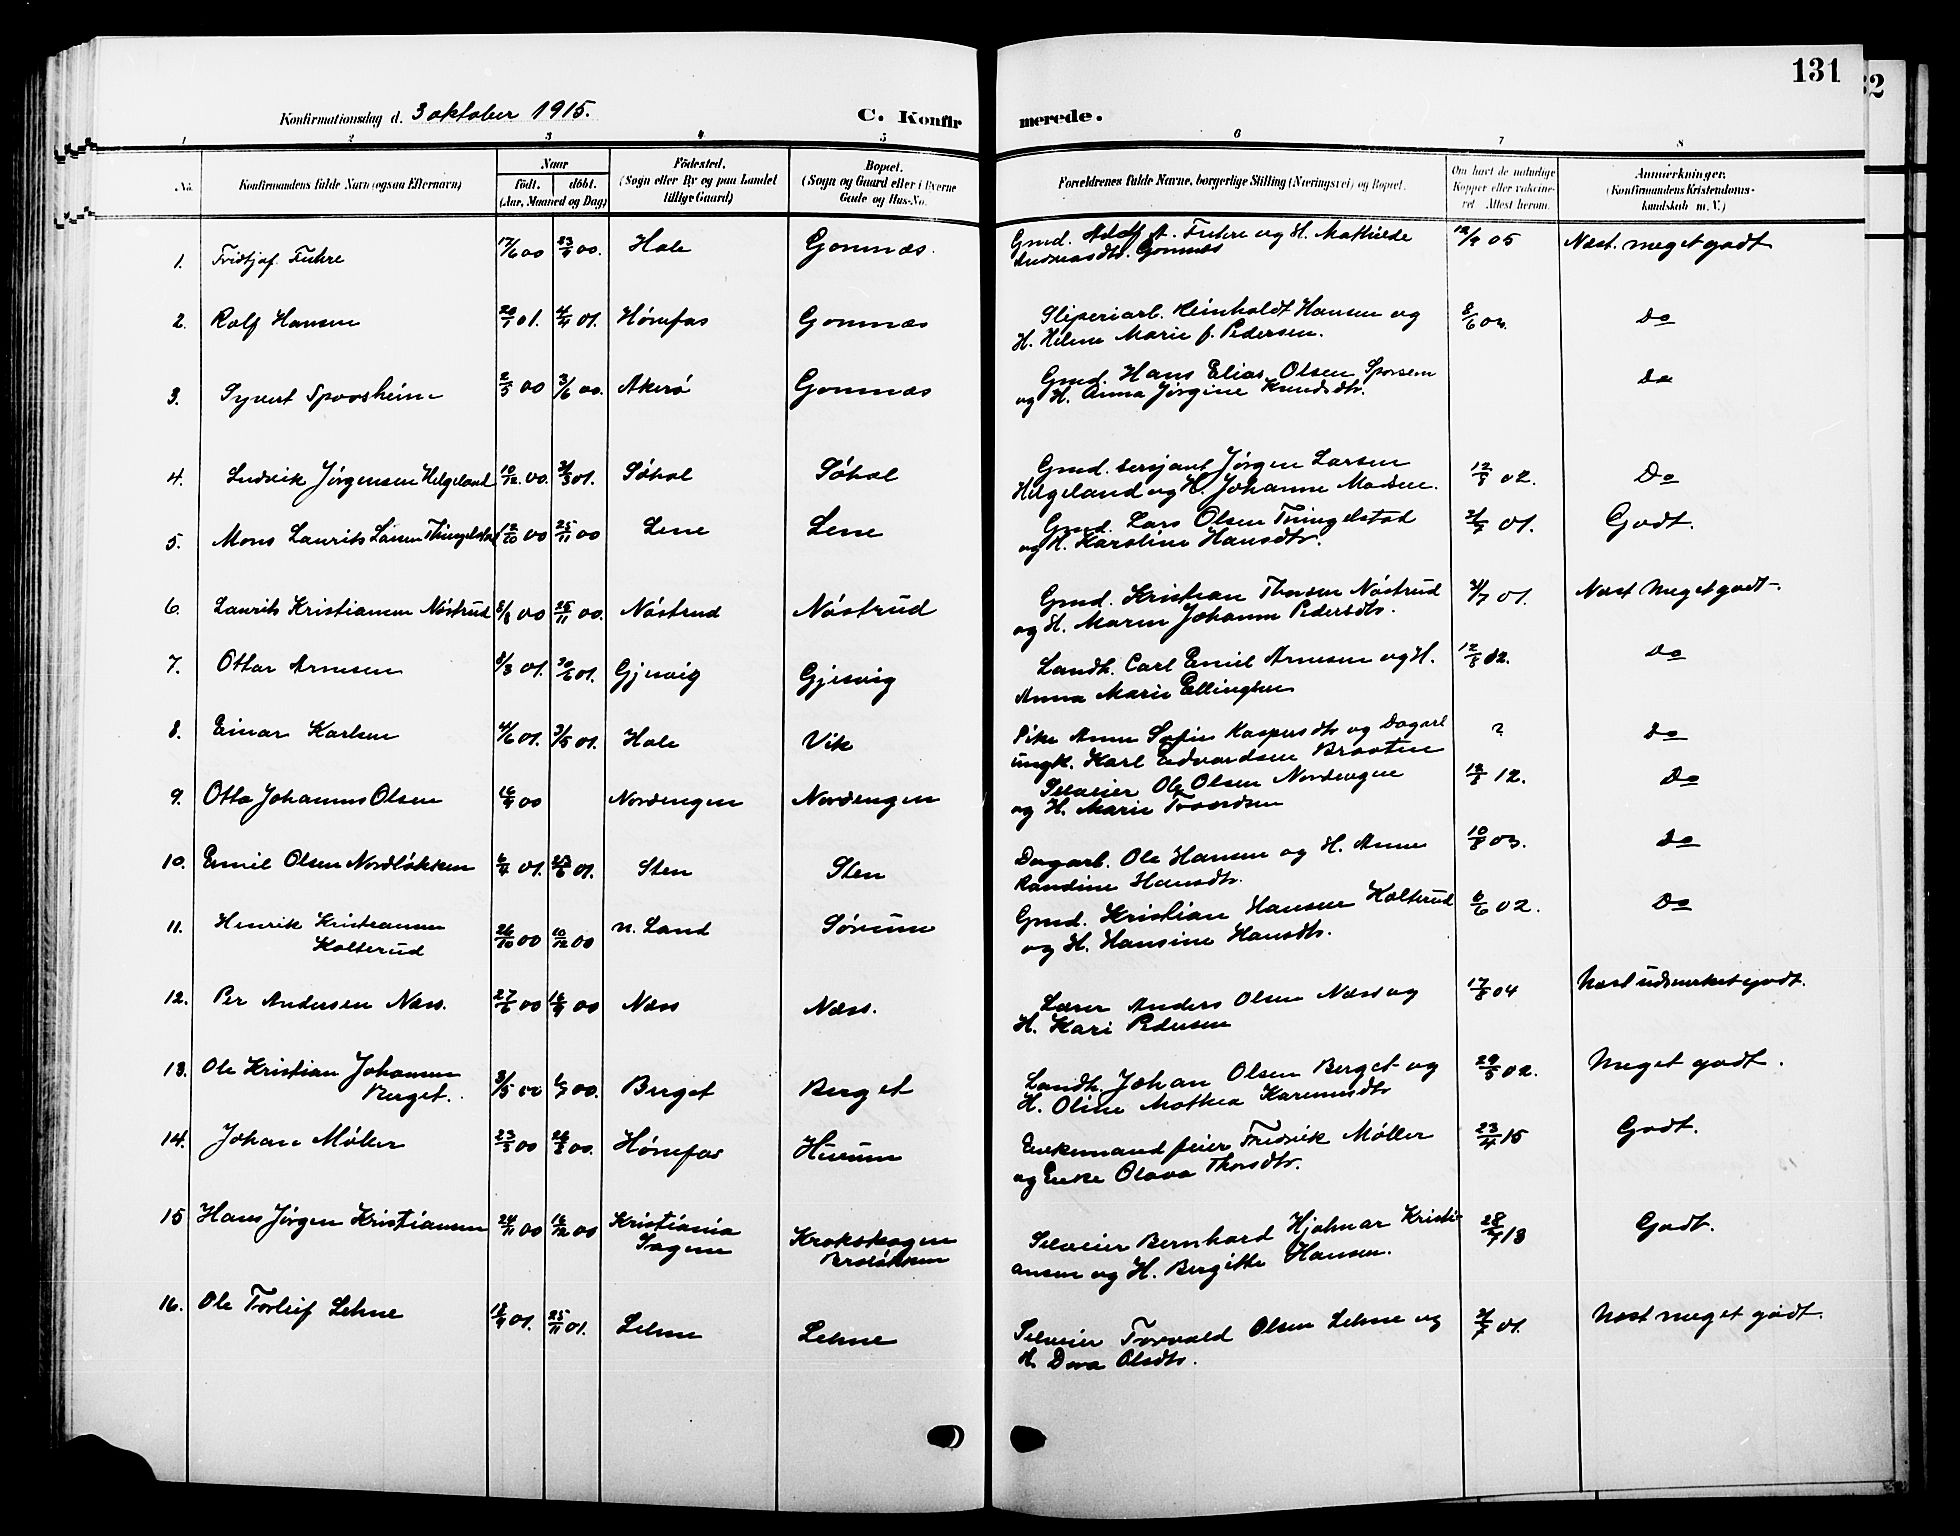 131
Konfirmationsdag d. 3 oktober 1915.
C. Konfirmerede.
1 2 3 4 5 6 7 8
No.
Konfirmandens fulde Navn (ogsaa Efternavn)
Naar
födt. döbt.
(Aar, Maaned og Dag)
Födested.
(Sogn eller By og paa Landet
tillige Gaard)
Bopæl.
(Sogn og Gaard eller i Byerne
Gade og Hus-No.
Forældrenes fulde Navne, borgerlige Stilling (Næringsvei) og Bopæl.
Om havt de naturlige
Kopper eller vakcine-
ret. Attest herom.
Anmærkninger.
(Konfirmandens Kristendoms-
kundskab m. V.)
1. Fridtjof Fuhre 17/6 00 23/9 00. Hole Gomnæs. Gmd. Adolf A. Fuhre og H. Mathilde 12/9 05 Næst. meget godt
Andreasdtr. Gomnæs
2. Rolf Hansen 20/1 01. 4/4 01. Hönefos Gomnæs Sliperiarb. Reinholdt Hansen og 8/6 03. Do
H. Helene Marie f. Pedersen.
3. Syvert Sporsheim 2/5 00 3/6 00. Akerö Gomnæs Gmd. Hans Elias Olsen Sporsem Do
og H. Anna Jörgine Knudsdtr.
4. Ludvik Jörgensen Helgeland 10/12 00. 31/3 01. Söhol Söhol Gmd. sersjant Jörgen Larsen 12/8 02. Do
Helgeland og H. Johanne Madsen.
5. Mons Laurits Larsen Thingelstad 12/10 00 25/11 00 Lene Lene Gmd. Lars Olsen Tningelstad 2/7 01. Godt.
og H. Karoline Hansdtr.
6. Laurits Kristiansen Nöstrud 8/8 00 25/11 00. Nöstrud Nöstrud Gmd. Kristian Thorsen Nöstrud 2/7 01. Næst Meget godt
og H. Maren Johanne Pedersdtr.
7. Ottar Arnesen 8/3 01. 30/6 01. Gjesvig Gjesvig Landh. Carl Emil Arnesen og H. 12/8 02. Do
Anna Marie Ellingsen
8. Einar Karlsen 4/6 01. 3/5 01. Hole Vik Pike Anne Sofie Kaspersdtr og Dagarb ? Do
ungk. Karl Edvardsen Braaten
9. Otto Johannes Olsen 16/9 00 Nordengen Nordengen Selveier Ole Olsen Nordengen 13/8 12. Do
og H. Marie
10. Emil Olsen Nordlökken 6/4 01. 23/6 01. Sten Sten Dagarb. Ole Hansen og H. Anne 10/8 03. Do
Randine Hansdtr.
11. Henrik Kristiansen 26/10 00 10/12 00 n. Land Sörum Gmd. Kristian Hansen Holterud 6/6 02. Do
Holterud og H. Hansine Hansdtr.
12. Per Andersen Næss. 27/6 00 16/9 00 Næss Næss. Lærer Anders Olsen Næss og 17/8 04 Næst udmerket godt.
H. Kari Pedersen
13. Ole Kristian Johansen 3/5 00 00. Berget Berget Landh. Johan Olsen Berget og 29/5 02. Meget godt.
Berget. H. Oline Mathea
14. Johan Möller 23/5 00 26/8 00. Hönefos Hurum Enkemand feier Fredrik Möller 23/4 15 Godt.
og Enke Olava Thorsdtr.
15 Hans Jörgen Kristiansen 24/11 00 16/12 00 Kristiania Krokskogen Selveier Bernhard Hjalmar Kristi- 28/7 13 Godt.
Sagene Bröölökken ansen og H. Bergitte Hansen.
16. Ole Torleif Lehne 18/9 01. 25/11 01. Lehne Lehne Selveier Torvald Olsen Lehne og 2/7 01. Næst meget godt.
H. Dora Olsdtr.